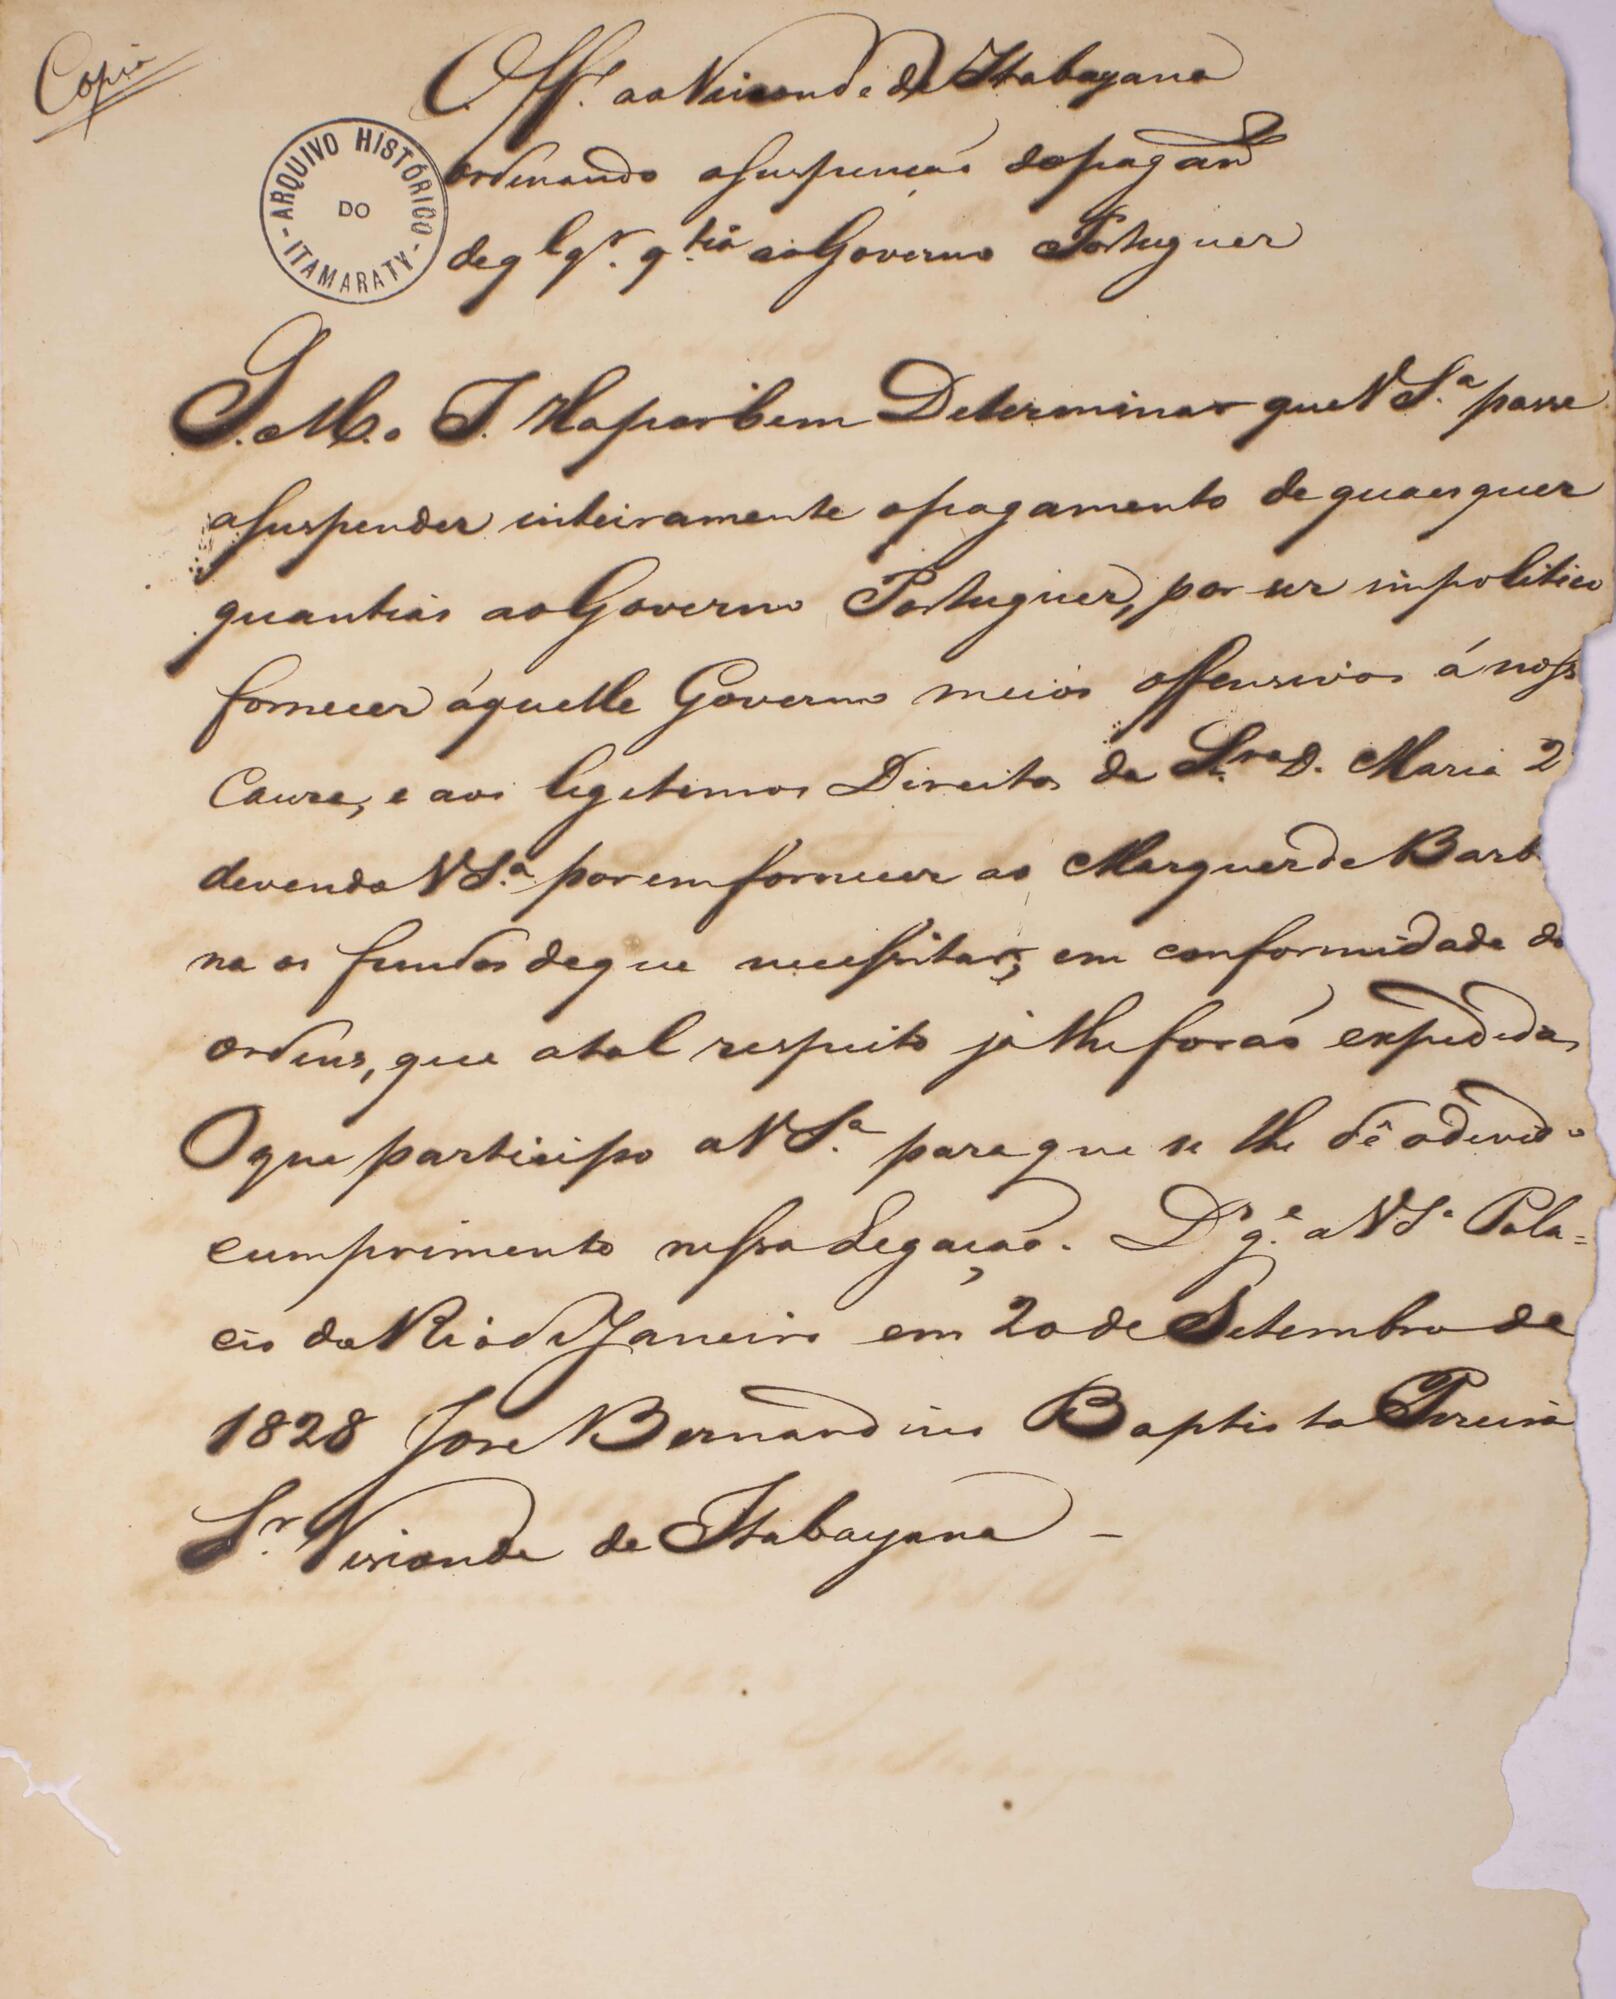 Copia
Off.º ao Visconde de Itabayana
ordenando a suspensaõ do pagam
de qlqr. q.tia ao Governo Portuguez
ARQUIVO HISTÓRICO
DO
- ITAMARATY -
S. M. o I. Ha por bem Determinar que V S.ª passe
a suspender inteiramente o pagamento de quaesquer
quantias ao Governo Portuguez, por ser impolitico
fornecer áquelle Governo meios offensivos á noss
Causa, e aos legitimos Direitos da Snra D. Maria 2
devendo V S.ª porem fornecer ao Marquez de Barb
na os fundos de que necessitar, em conformidade d
ordens, que a tal respeito já lhe foraõ expedidas
O que participo a V S.ª para que se lhe dê o devido
cumprimento nessa Legação. D.s g.e a V S.ª Pala=
cio do Rio de Janeiro em 20 de Setembro de
1828 Jose Bernardino Baptista Pereira
Sr. Visconde de Itabayana -